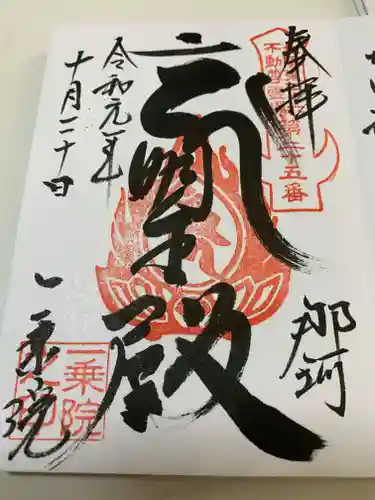 奉拝
不動尊霊場第三十五番
那珂
明王殿
令和元年
十月二十日
一乗院
一乗院